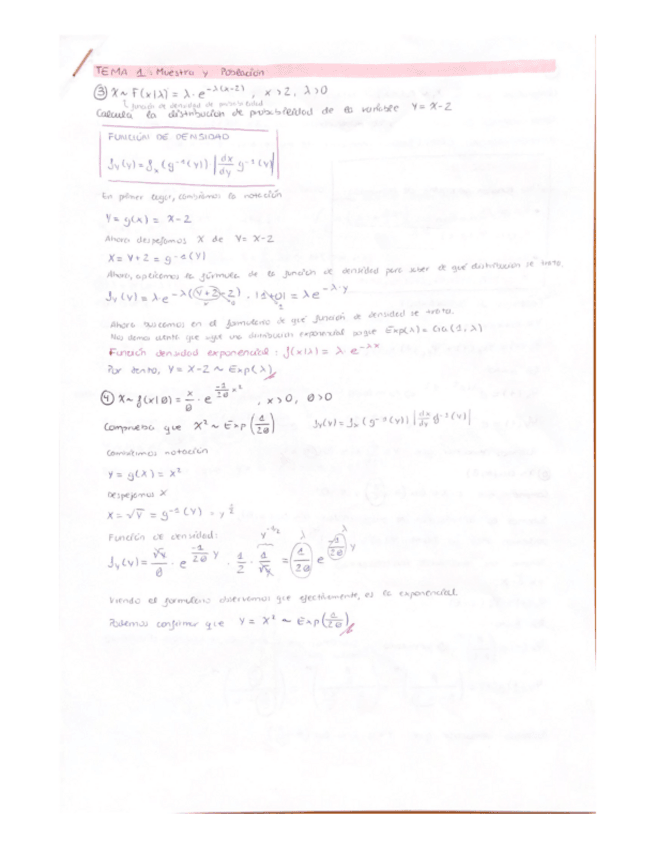 TEMA 1: Muestra y Población
③ X ~ F(x|λ) = λ · e^{-λ(x-2)}, x > 2, λ > 0
función de densidad de probabilidad
Calcula la distribución de probabilidad de la variable Y = X-2
FUNCIÓN DE DENSIDAD
f_Y(y) = f_x(g^{-1}(y)) |dx/dy g^{-1}(y)|
En primer lugar, cambiamos la notación
Y = g(x) = X-2
Ahora despejamos X de Y = X-2
X = Y+2 = g^{-1}(Y)
Ahora, aplicamos la fórmula de la función de densidad para saber de qué distribución se trata.
f_Y(y) = λ · e^{-λ((y+2)-2)} · |1+0| = λ e^{-λ·y}
Ahora buscamos en el formulario de qué función de densidad se trata.
Nos damos cuenta que sigue una distribución exponencial porque Exp(λ) = Ga(1, λ)
Función densidad exponencial: f(x|λ) = λ · e^{-λx}
Por tanto, Y = X-2 ~ Exp(λ)
④ X ~ f(x|θ) = x/θ · e^{-1/2θ x²}, x > 0, θ > 0
Comprueba que X² ~ Exp(1/2θ) f_Y(y) = f_x(g^{-1}(y)) |dx/dy g^{-1}(y)|
Cambiamos notación
Y = g(x) = X²
Despejamos X
X = √Y = g^{-1}(Y) = y^{1/2}
Función de densidad: y^{-1/2} λ λ
f_Y(y) = √y/θ · e^{-1/2θ y} · 1/2 · 1/√y = (1/2θ) e^{-1/2θ y}
Viendo el formulario observamos que efectivamente, es la exponencial.
Podemos confirmar que Y = X² ~ Exp(1/2θ)